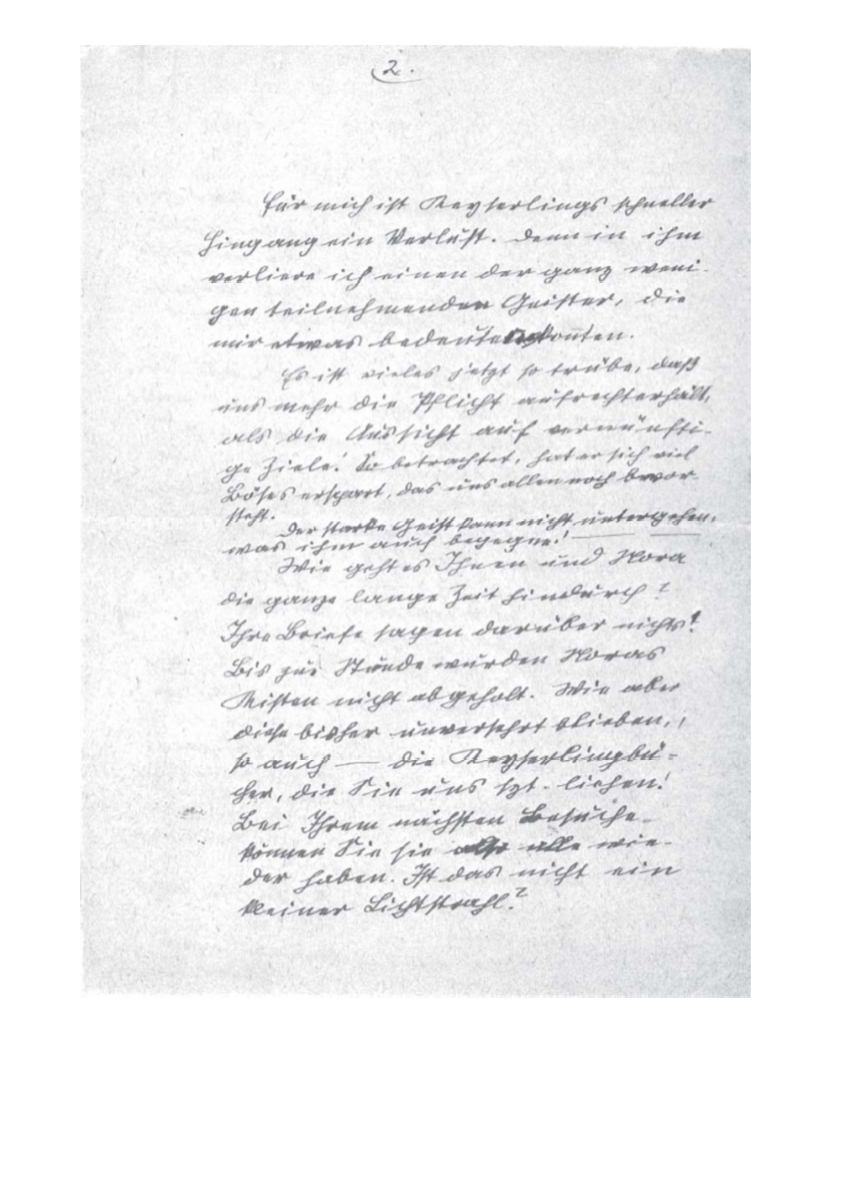 2.
Für mich ist Keyserlings schneller
Hingang ein Verlust. Denn in ihm
verliere ich einen der ganz weni-
gen teilnehmenden Geister, die
mir etwas bedeuten konnten.
Es ist vieles jetzt so trübe, daß
uns mehr die Pflicht aufrechterhält,
als die Aussicht auf vernünfti-
ge Ziele! So betrachtet, hat er sich viel
Böses erspart, das uns allen noch bevor-
steht.
Der starke Geist kann nicht untergehen,
was ihm auch begegne!
Wie geht es Ihnen und Nora
die ganze lange Zeit hindurch?
Ihre Briefe sagen darüber nichts!
Bis zur Stunde wurden Noras
Kisten nicht abgeholt. Wie aber
diese bisher unversehrt blieben,
so auch — die Keyserlingbü-
cher, die Sie uns szt. liehen!
Bei Ihrem nächsten Besuche
können Sie sie also alle wie-
der haben. Ist das nicht ein
kleiner Lichtstrahl?